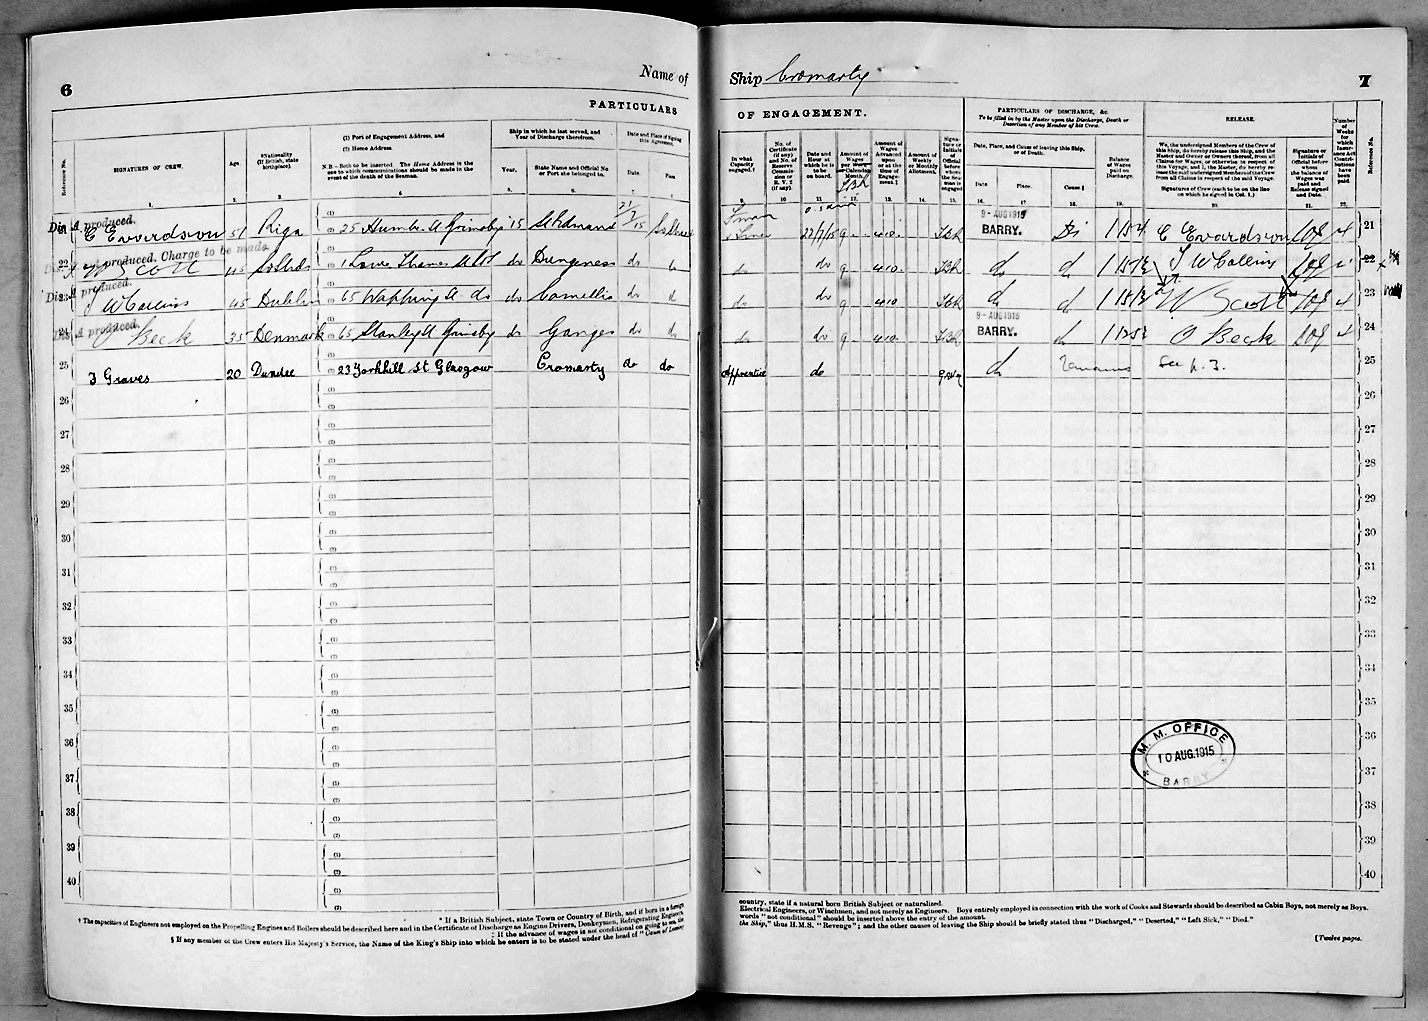 6
Name of
PARTICULARS
Reference No.
SIGNATURES OF CREW.
Age.
*Nationality
(If British, state
birthplace).
(1) Port of Engagement Address, and
(2) Home Address.
N.B.—Both to be inserted. The Home Address is the
one to which communications should be made in the
event of the death of the Seaman.
Ship in which he last served, and
Year of Discharge therefrom.
Year.
State Name and Official No
or Port she belonged to.
Date and Place of Signing
this Agreement.
Date.
Place
1. 2. 3. 4 5. 6. 7. 8
Dis. A produced.
E Evardson 51 Riga 25 Humber St Grimsby 15 21/7/15
22 Dis. A not produced. Charge to be made.
W Scott 45 do Dungeness do
Dis. A produced.
23 J W Collins 45 Dublin 65 Wapping St do do Camellia do do
24 Dis. A produced.
O Beck 35 Denmark 65 Stanley St Grimsby do Ganges do do
25 J Graves 20 Dundee 23 Yorkhill St Glasgow Cromarty do do
26
27
28
29
30
31
32
33
34
35
36
37
38
39
40
* If a British Subject, state Town or Country of Birth, and if born in a foreign
† The capacities of Engineers not employed on the Propelling Engines and Boilers should be described here and in the Certificate of Discharge as Engine Drivers, Donkeymen, Refrigerating Engineers,
‡ If the advance of wages is not conditional on going to sea, the
§ If any member of the Crew enters His Majesty's Service, the Name of the King's Ship into which he enters is to be stated under the head of "Cause of Leaving
Ship Cromarty
7
OF ENGAGEMENT.
In what
Capacity
engaged.†
No. of
Certificate
(if any)
and No. of
Reserve
Commis-
sion or
R. V. 2
(if any).
Date and
Hour at
which he is
to be
on board.
Amount of
Wages
per Week
or Calendar
Month.
Amount of
Wages
Advanced
upon
or at the
time of
Engage-
ment.‡
Amount of
Weekly
or Monthly
Allotment.
Signature
or
Initials of
Official
before
whom the
Seaman is
engaged
PARTICULARS OF DISCHARGE, &c.
To be filled in by the Master upon the Discharge, Death or
Desertion of any Member of his Crew.
Date, Place, and Cause of leaving this Ship,
or of Death.
Date
Place.
Cause §
Balance of
Wages
paid on
Discharge.
RELEASE.
We, the undersigned Members of the Crew of
this Ship, do hereby release this Ship, and the
Master and Owner or Owners thereof, from all
Claims for Wages, or otherwise in respect of
this Voyage, and I, the Master, do hereby re-
lease the said undersigned Members of the Crew
from all Claims in respect of the said Voyage.
Signatures of Crew (each to be on the line
on which he signed in Col. 1.)
Signature or
Initials of
Official before
whom
the balance of
Wages was
paid and
Release signed
and Date.
Number
of
Weeks
for
which
Insur-
ance Act
Contri-
butions
have been
paid.
Reference No.
9. 10. 11. 12. 13. 14. 15. 16. 17. 18. 19. 20. 21. 22.
22/7/15 9 4 10 9 - AUG 1915 BARRY. E Evardson 4 21
do do 9 4 10 do do J W Collins 22
do do 9 4 10 do do W Scott 4 23
do do 9 4 10 9 - AUG 1915 BARRY. do O Beck 4 24
Apprentice do do Remains See p. 3. 25
26
27
28
29
30
31
32
33
34
35
36
M. M. OFFICE
10 AUG. 1915
BARRY
37
38
39
40
country, state if a natural born British Subject or naturalized.
Electrical Engineers, or Winchmen, and not merely as Engineers. Boys entirely employed in connection with the work of Cooks and Stewards should be described as Cabin Boys, not merely as Boys.
words "not conditional" should be inserted above the entry of the amount.
the Ship," thus H.M.S. "Revenge"; and the other causes of leaving the Ship should be briefly stated thus "Discharged," "Deserted," "Left Sick," "Died."
[Twelve pages.